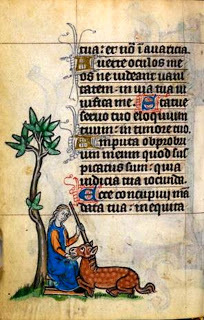 tua: et nō ī auaricia
Auerte oculos me
os ne uideant uani
tatem: in uia tua ui
uifica me. Statue
seruo tuo eloquium
tuum: in timore tuo.
Amputa obprobri
um meum quod sus
picatus sum: quia
iudicia tua iocunda.
Ecce concupiui man
data tua: in equita